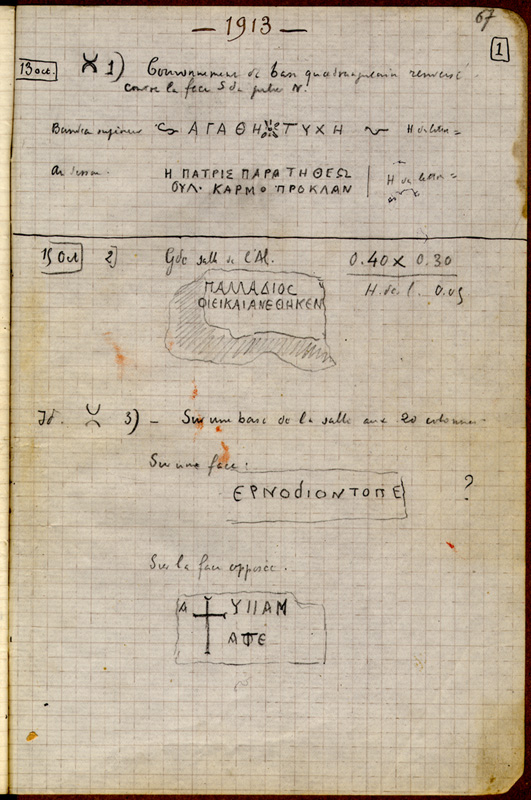 67
— 1913 —
1
13 oct. 1) Couronnement de base quadrangulaire renversé
contre la face S du pilier N.
Bandeau supérieur ΑΓΑΘΗ ΤΥΧΗ H de lettre =
Au dessous Η ΠΑΤΡΙΣ ΠΑΡΑ ΤΗ ΘΕΩ H de lettre =
ΟΥΛ· ΚΑΡΜΟ ΠΡΟΚΛΑΝ
15 Oct 2] Gde salle de l'Al. 0.40 x 0.30
H. de l. 0.05
ΠΑΛΛΑΔΙΟΣ
ΟΙΕΙΚΑΙΑΝΕΘΗΚΕΝ
Id. 3) — Sur une base de la salle aux 20 colonnes
Sur une face :
ΕΡΝΟδΙΟΝΤΟΠΕ ?
Sur la face opposée.
Α ΥΠΑΜ
ΑΠΕ